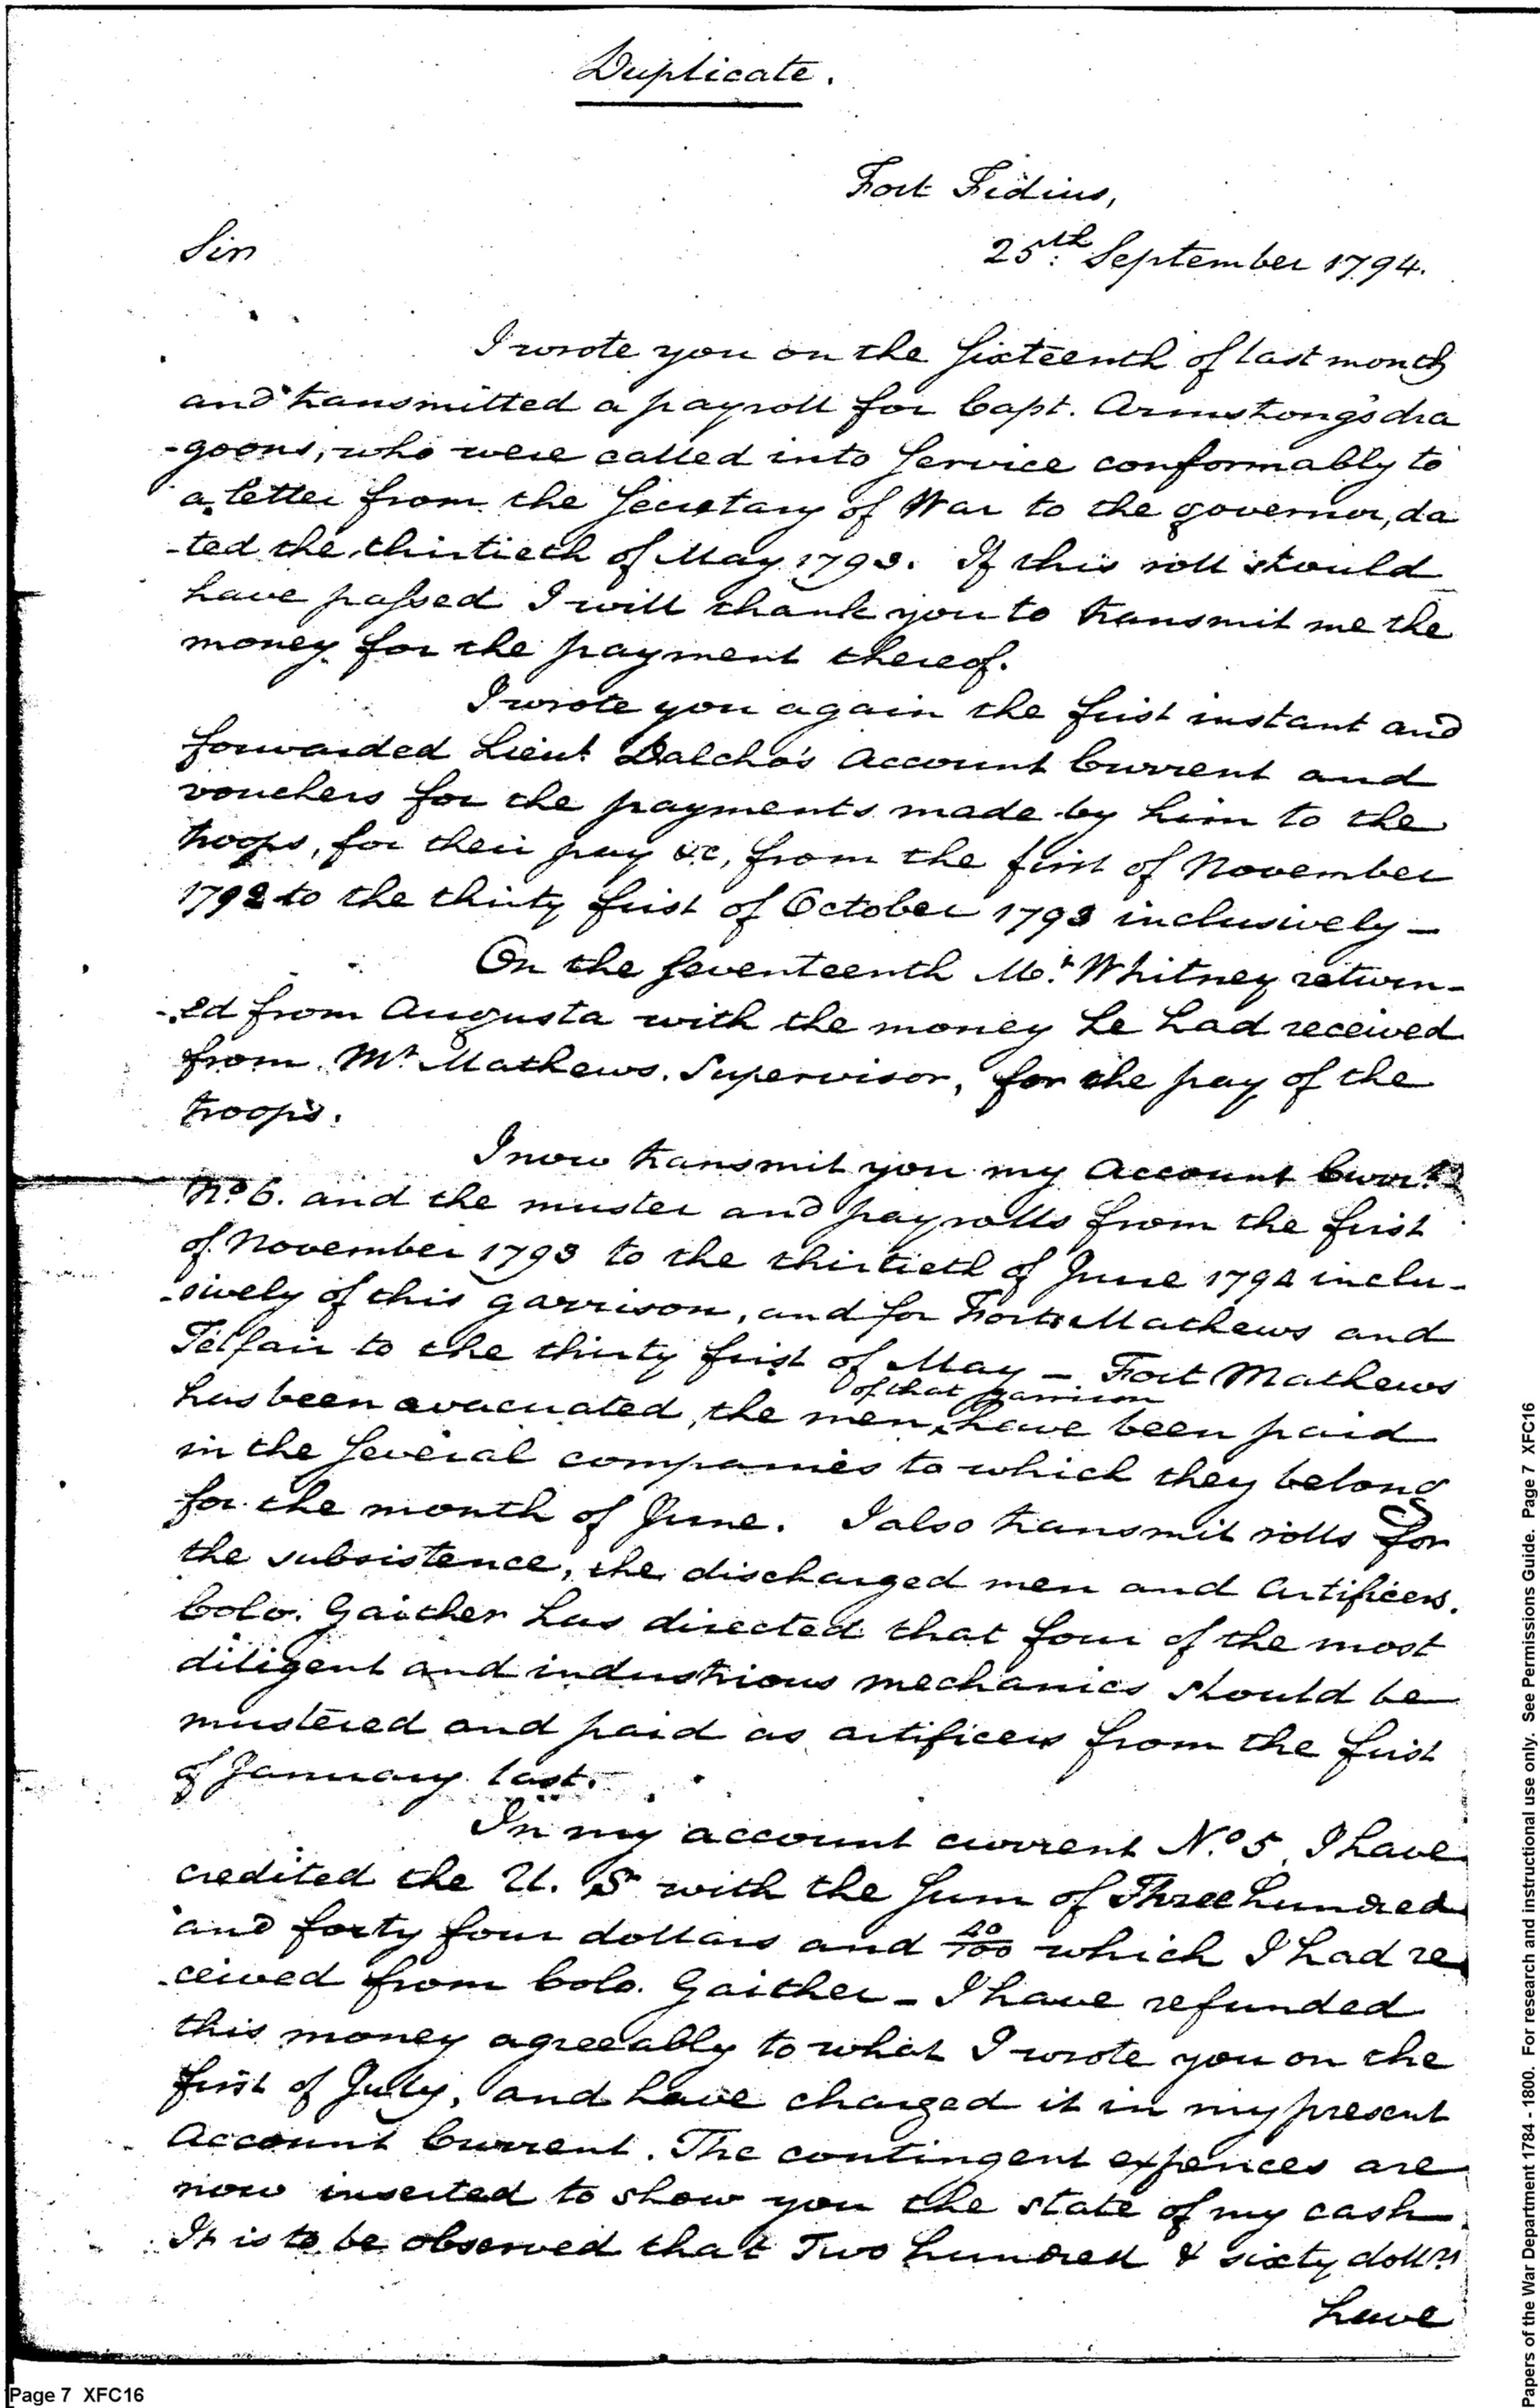 Duplicate.
Fort Fidius,
Sir
25th September 1794.
I wrote you on the sixteenth of last month
and transmitted a payroll for Capt. Armstrong's dra
-goons, who were called into service conformably to
a letter from the Secretary of War to the governor, da
-ted the thirtieth of May 1793. If this roll should
have passed I will thank you to transmit me the
money for the payment thereof.
I wrote you again the first instant and
forwarded Lieut. Dalcho's Account Current and
vouchers for the payments made by him to the
troops, for their pay &c, from the first of November
1792 to the thirty first of October 1793 inclusively —
On the seventeenth Mr. Whitney return-
-ed from Augusta with the money he had received
from Mr Mathews, Supervisor, for the pay of the
troops.
I now transmit you my Account Curr.t
No 6. and the muster and payrolls from the first
of November 1793 to the thirtieth of June 1794 inclu-
-sively of this garrison, and for Forts Mathews and
Telfair to the thirty first of May — Fort Mathews
of that garrison
has been evacuated, the men ^ have been paid
in the several companies to which they belong
for the month of June. I also transmit rolls for
the subsistence, the discharged men and Artificers.
Colo. Gaither has directed that four of the most
diligent and industrious mechanics should be
mustered and paid as artificers from the first
of January last.
In my account current No. 5, I have
credited the U. S with the sum of Three hundred
and forty four dollars and 40/100 which I had re
-ceived from Colo. Gaither — I have refunded
this money agreeably to what I wrote you on the
first of July, and have charged it in my present
Account Current. The contingent expences are
now inserted to show you the state of my cash
It is to be observed that Two hundred & sixty dollrs
have
Page 7 XFC16
Papers of the War Department 1784 - 1800. For research and instructional use only. See Permissions Guide. Page 7 XFC16